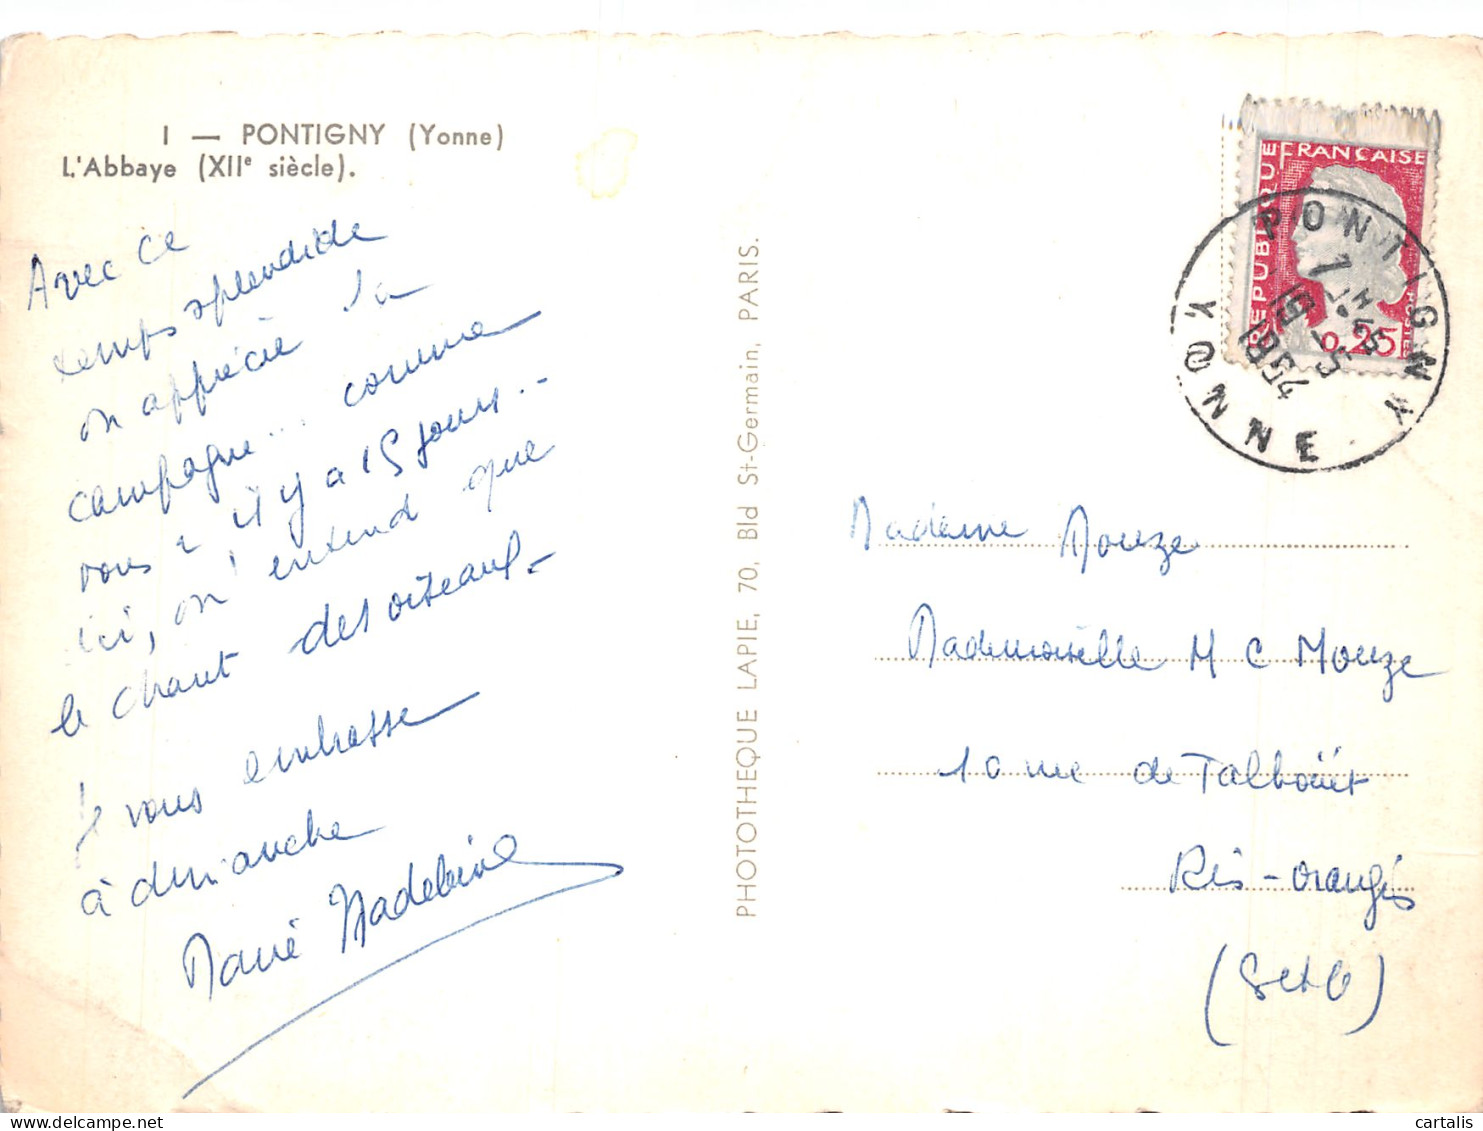 I — PONTIGNY (Yonne)
L'Abbaye (XIIe siècle).
Avec ce
temps splendide
on apprécie la
campagne... comme
vous il y a 15 jours.-
Ici, on entend que
le chant des oiseaux.-
Je vous embrasse
à dimanche
Marie Madeleine
PHOTOTHEQUE LAPIE, 70, Bld St-Germain, PARIS.
REPUBLIQUE FRANÇAISE
POSTES
0,25
PONTIGNY
YONNE
Madame Mouze
Mademoiselle M C Mouze
10 rue de Talhouët
Ris-orangis
(S et O)
cartalis